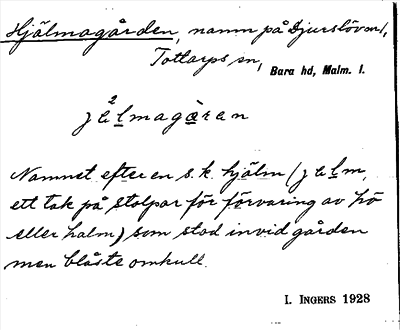 Hjälmagården, namn på Djurslöv 01,
Tottarps sn, Bara hd, Malm. l.
Namnet efter en s.k. hjälm (jälm,
ett tak på stolpar för förvaring av hö
eller halm) som stod invid gården
men blåste omkull.
I. INGERS 1928